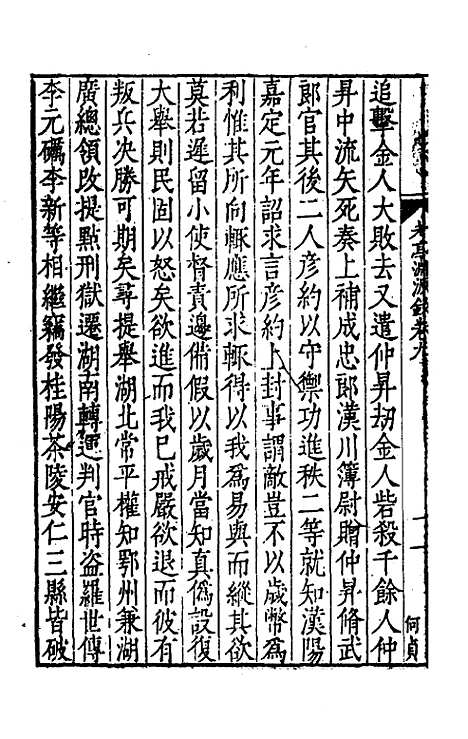 考亭淵源錄卷九
何貞
追擊金人大敗去又遣仲昇刼金人砦殺千餘人仲
昇中流矢死奏上補成忠郎漢川簿尉贈仲昇脩武
郎官其後二人彦約以守禦功進秩二等就知漢陽
嘉定元年詔求言彦約上封事謂敵豈不以歲幣爲
利惟其所向輒應所求輒得以我爲易與而縱其欲
莫若遲留小使督責邊備假以歲月當知真僞設復
大舉則民固以怒矣欲進而我已戒嚴欲退而彼有
叛兵决勝可期矣尋提舉湖北常平權知鄂州兼湖
廣總領改提點刑獄遷湖南轉運判官時盗羅世傳
李元礪李新等相繼竊發桂陽茶陵安仁三縣皆破